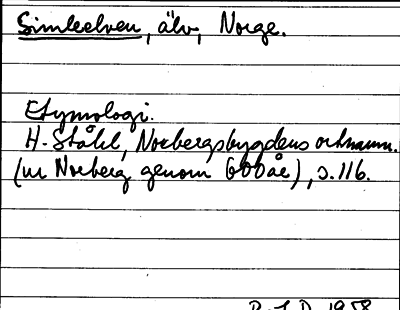 Simleelven, älv, Norge.
Etymologi.
H. Ståhl, Norbergsbygdens ortnamn.
(ur Norberg genom 600 år), s. 116.
1958